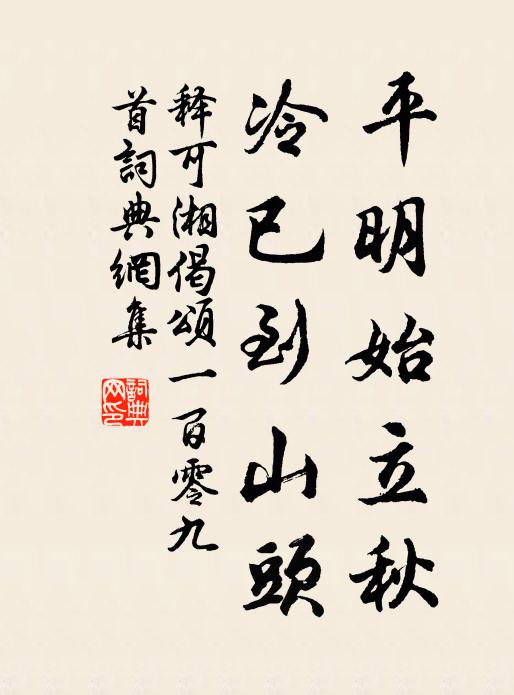 平明始立秋
冷已到山頭
释可湘偈頌一百零九
首詞典網集
詞典網印